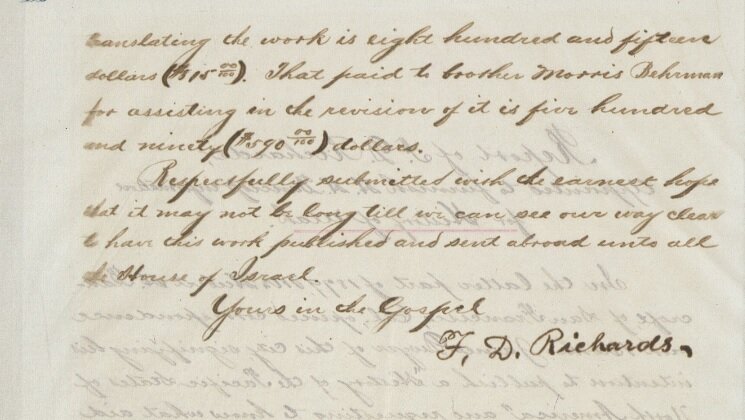 translating the work is eight hundred and fifteen
dollars ($815 00/100). That paid to brother Morris Behrman
for assisting in the revision of it is five hundred
and ninety ($590 00/100) dollars.
Respectfully submitted with the earnest hope
that it may not be long till we can see our way clear
to have this work published and sent abroad unto all
the House of Israel.
Yours in the Gospel
F. D. Richards.